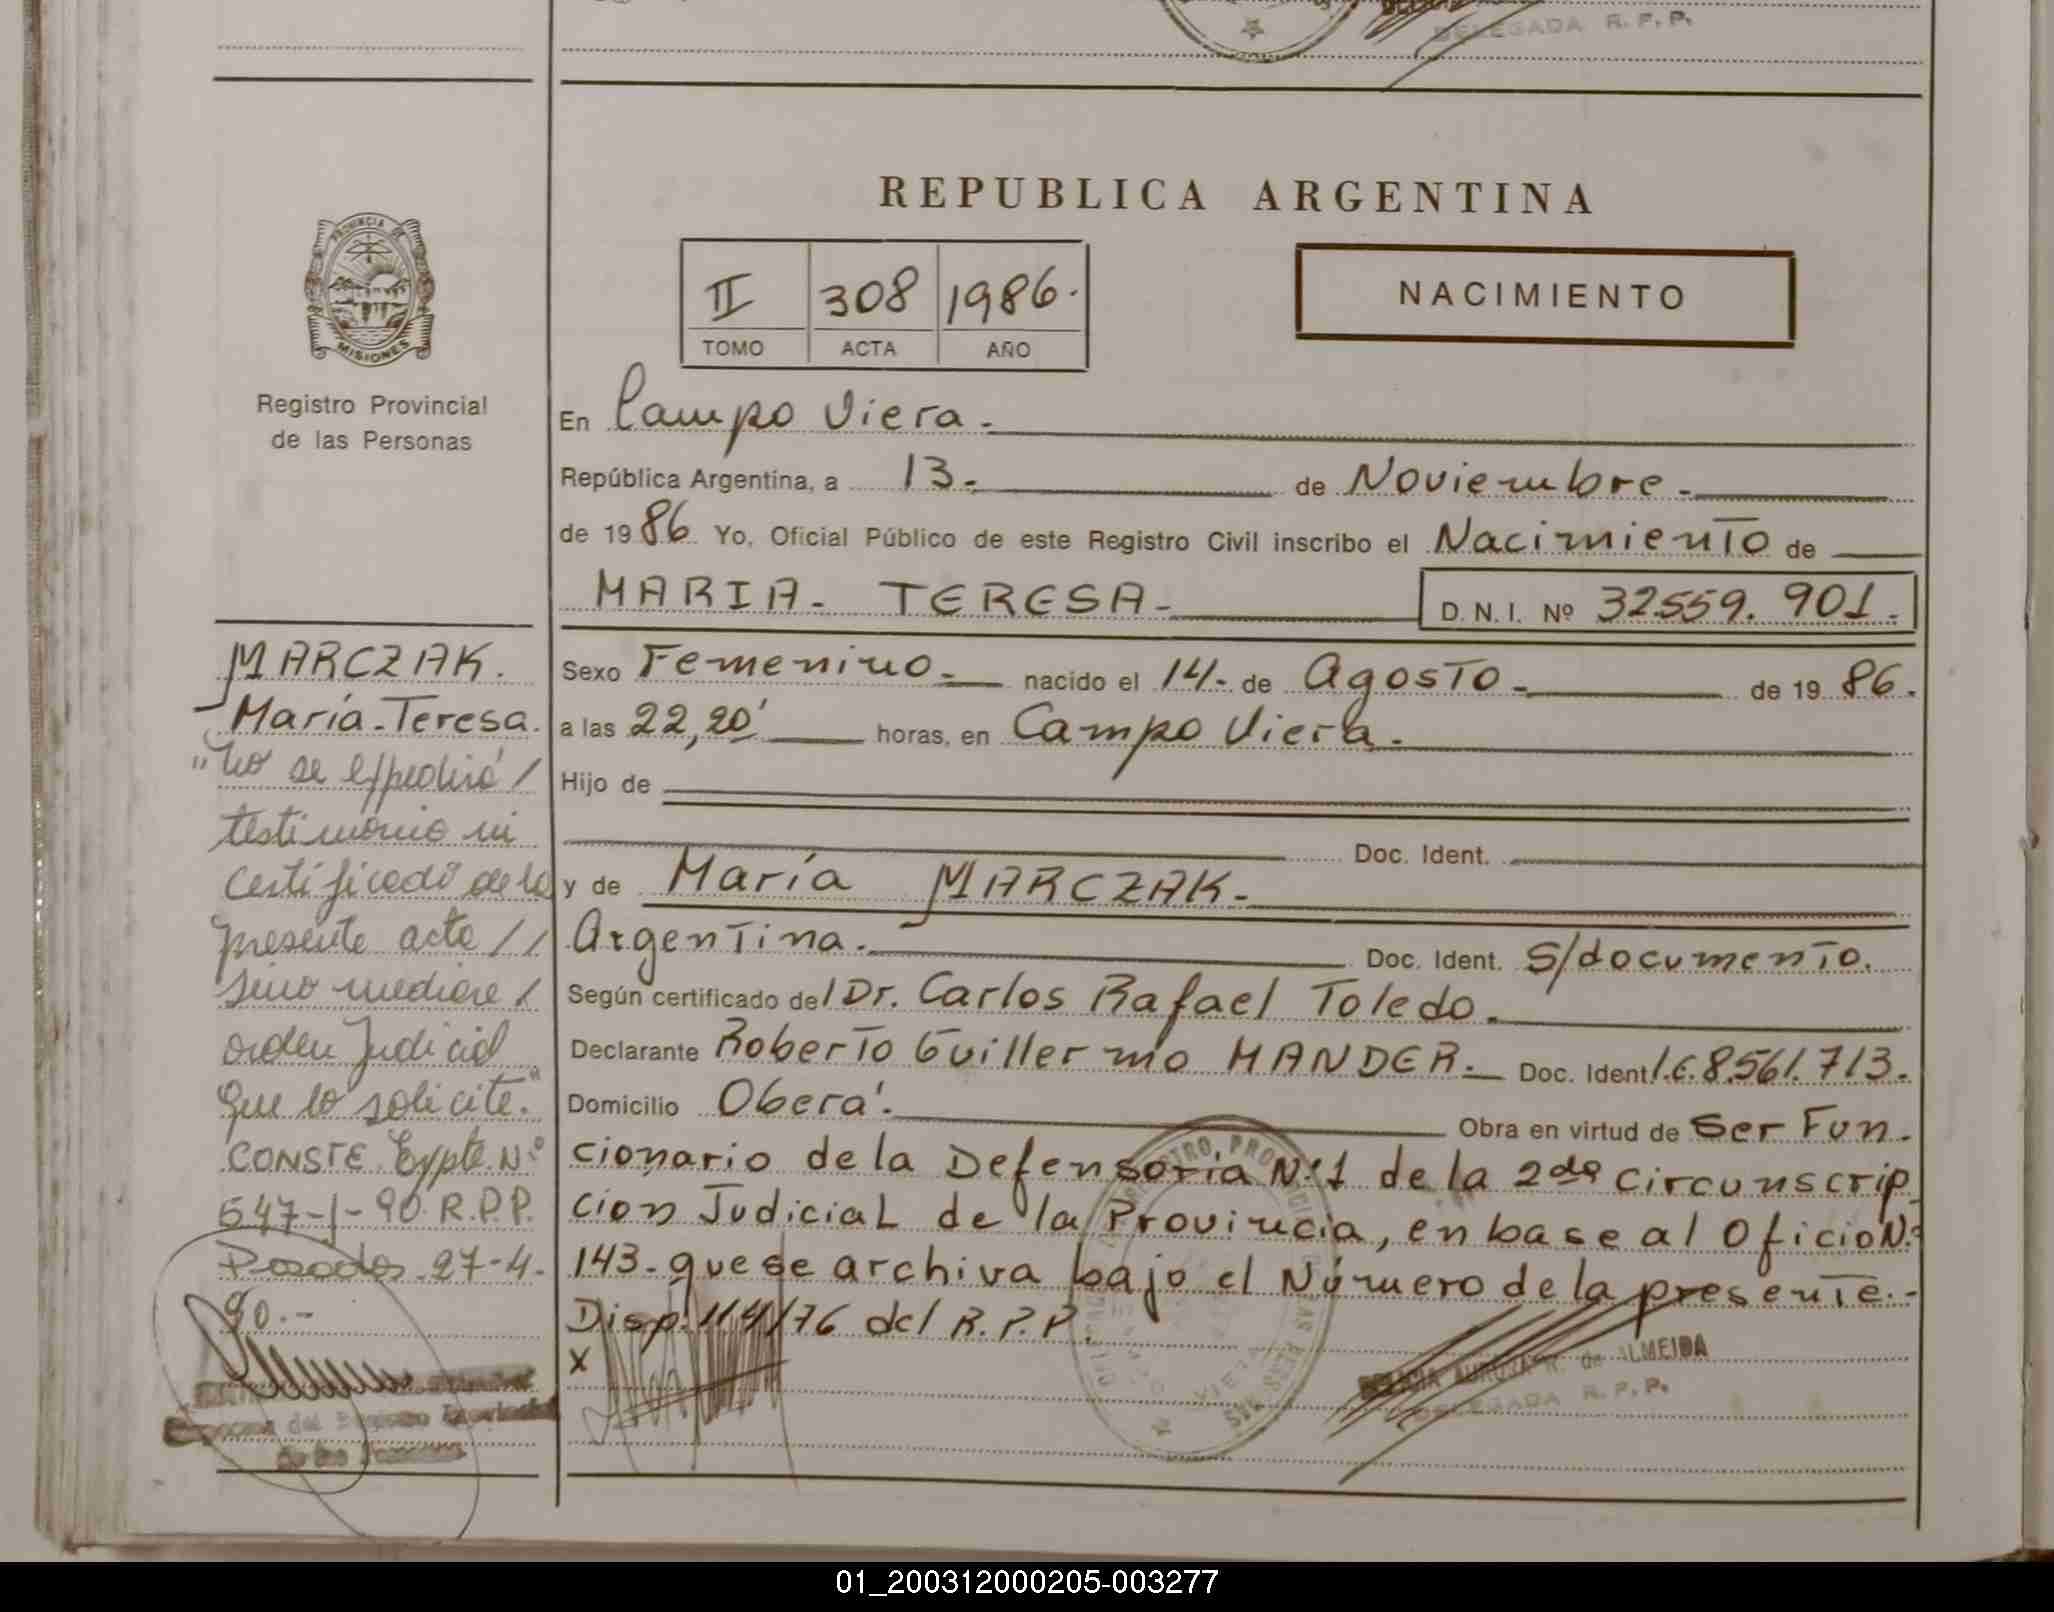 DELEGADA R. P. P.
REPUBLICA ARGENTINA
NACIMIENTO
II 308 1986.
TOMO ACTA AÑO
PROVINCIA DE
MISIONES
Registro Provincial
de las Personas
En Campo Viera.
República Argentina, a 13. de Noviembre.
de 1986. Yo, Oficial Público de este Registro Civil inscribo el Nacimiento de
MARIA. TERESA. D. N. I. Nº 32559.901.
Sexo Femenino. nacido el 14. de Agosto. de 1986.
a las 22,20' horas, en Campo Viera.
Hijo de
Doc. Ident.
y de María MARCZAK.
Argentina. Doc. Ident. S/documento.
Según certificado del Dr. Carlos Rafael Toledo.
Declarante Roberto Guillermo HANDER. Doc. Ident. 8.561.713.
Domicilio Oberá. Obra en virtud de Ser Fun.
cionario de la Defensoría Nº1 de la 2da circunscrip
cion Judicial de la Provincia, en base al Oficio N.º
143. que se archiva bajo el Número de la presente.-
Disp. 114/76 del R.P.P.
X
MARCZAK.
María-Teresa.
"No se expedirá /
testimonio ni
certificado de la
presente acta //
sino mediare /
orden Judicial
que lo solicite."
CONSTE Expte. Nº
647-1-90 R.P.P.
Posadas 27-4-
90.-
del Registro Provincial
de las Personas
AURORA R. de ALMEIDA
DELEGADA R. P. P.
01_200312000205-003277